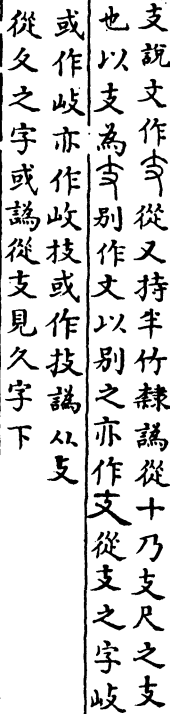 支說文作𠦙從又持半竹隸譌從十乃支尺之支
也以支為𠦙别作丈以别之亦作攴從支之字岐
或作歧亦作㟚技或作技譌从支
從夂之字或譌從支見久字下